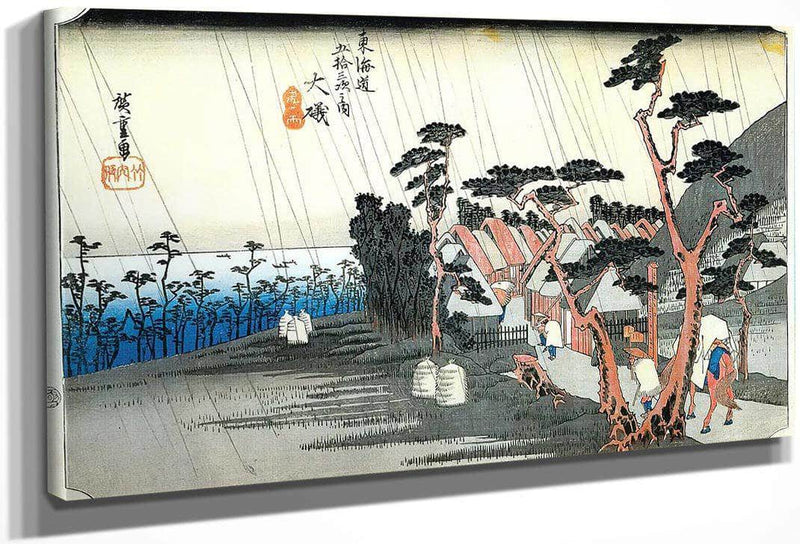 東海道
五拾三次之内
大磯
虎ヶ雨
廣重画
竹内版